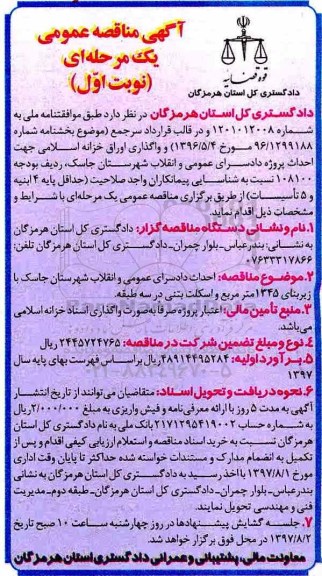 آگهی مناقصه عمومی
یک مرحله‌ای
(نوبت اوّل)
قوه قضائیه
دادگستری کل استان هرمزگان
دادگستری کل استان هرمزگان در نظر دارد طبق موافقتنامه ملی به
شماره ۱۲۰۱۰۱۲۰۰۸ و در قالب قرارداد سرجمع (موضوع بخشنامه شماره
۹۶/۱۲۹۹۱۸۸ مورخ ۱۳۹۶/۵/۴) و واگذاری اوراق خزانه اسلامی جهت
احداث پروژه دادسرای عمومی و انقلاب شهرستان جاسک، ردیف بودجه
۱۰۸۱۰۰ نسبت به شناسایی پیمانکاران واجد صلاحیت (حداقل پایه ۴ ابنیه
و ۵ تأسیسات) از طریق برگزاری مناقصه عمومی یک مرحله‌ای با شرایط و
مشخصات ذیل اقدام نماید.
۱.نام و نشانی دستگاه مناقصه گزار: دادگستری کل استان هرمزگان
به نشانی: بندرعباس-بلوار چمران-دادگستری کل استان هرمزگان تلفن:
۰۷۶۳۳۳۱۷۸۶۶
۲.موضوع مناقصه: احداث دادسرای عمومی و انقلاب شهرستان جاسک با
زیربنای ۱۳۴۵متر مربع و اسکلت بتنی در سه طبقه.
۳.منبع تأمین مالی: اعتبار پروژه صرفاً به صورت واگذاری اسناد خزانه اسلامی
می‌باشد.
۴.نوع و مبلغ تضمین شرکت در مناقصه: ۲۴۴۵۷۲۴۷۶۵ ریال
۵.برآورد اولیه: ۴۸۹۱۴۴۹۵۲۸۴ریال براساس فهرست بهای پایه سال
۱۳۹۷
۶.نحوه دریافت و تحویل اسناد: متقاضیان می‌توانند از تاریخ انتشار
آگهی به مدت ۵ روز با ارائه معرفی‌نامه و فیش واریزی به مبلغ ۲/۰۰۰/۰۰۰ریال
به شماره حساب ۲۱۷۱۲۹۵۴۱۹۰۰۲ بانک ملی به نام دادگستری کل استان
هرمزگان نسبت به خرید اسناد مناقصه و استعلام ارزیابی کیفی اقدام و پس از
تکمیل به انضمام مدارک و مستندات خواسته شده حداکثر تا پایان وقت اداری
مورخ ۱۳۹۷/۸/۱ با اخذ رسید به دادگستری کل استان هرمزگان به نشانی
بندرعباس-بلوار چمران-دادگستری کل استان هرمزگان-طبقه دوم-مدیریت
فنی و مهندسی تحویل نمایند.
۷.جلسه گشایش پیشنهادها در روز چهارشنبه ساعت ۱۰ صبح تاریخ
۱۳۹۷/۸/۲ در محل فوق برگزار خواهد شد.
معاونت مالی، پشتیبانی و عمرانی دادگستری استان هرمزگان